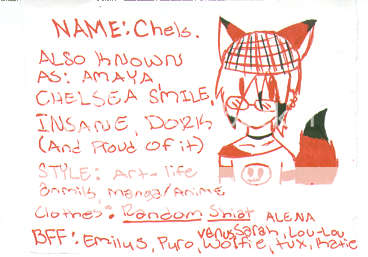 NAME: Chels.
ALSO KNOWN
AS: AMAYA,
CHELSEA SMILE,
INSANE, DORK
(And Proud of it)
STYLE: Art-life
Anmils, manga/Anime
Clothes: Random Shiat
ALENA
venus, Sarah, Lou-Lou
BFF: Emilys, Pyro, Wolfie, tux, Katie